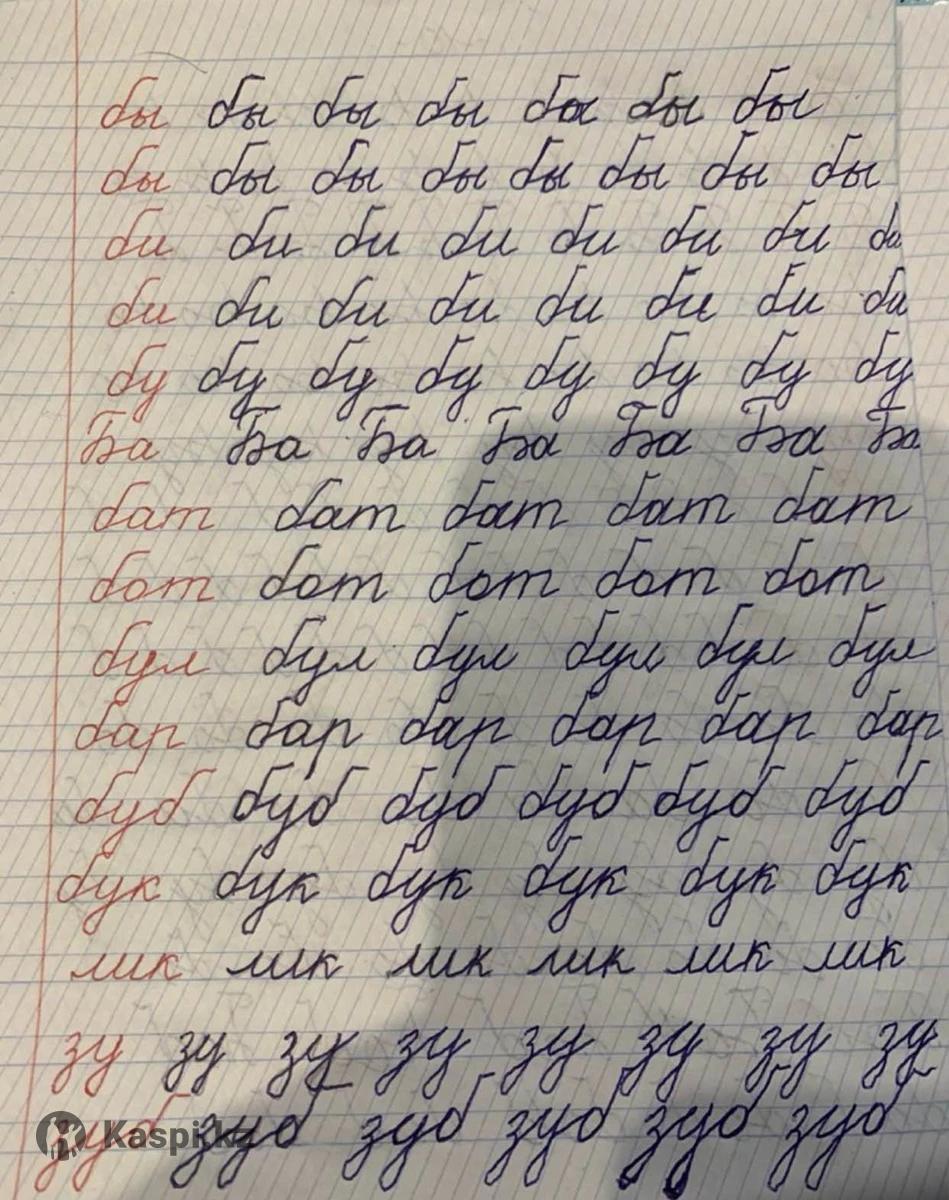 бы бы бы бы бы бы бы
бы бы бы бы бы бы бы бы
би би би би би би би би
би би би би би би би би
бу бу бу бу бу бу бу бу
Ба Ба Ба Ба Ба Ба Ба
бат бат бат бат бат
бот бот бот бот бот
бул бул бул бул бул бул
бар бар бар бар бар бар
буб буб буб буб буб буб
бук бук бук бук бук бук
лик лик лик лик лик лик
зу зу зу зу зу зу зу зу
зуб зуб зуб зуб зуб зуб
Kaspi.kz